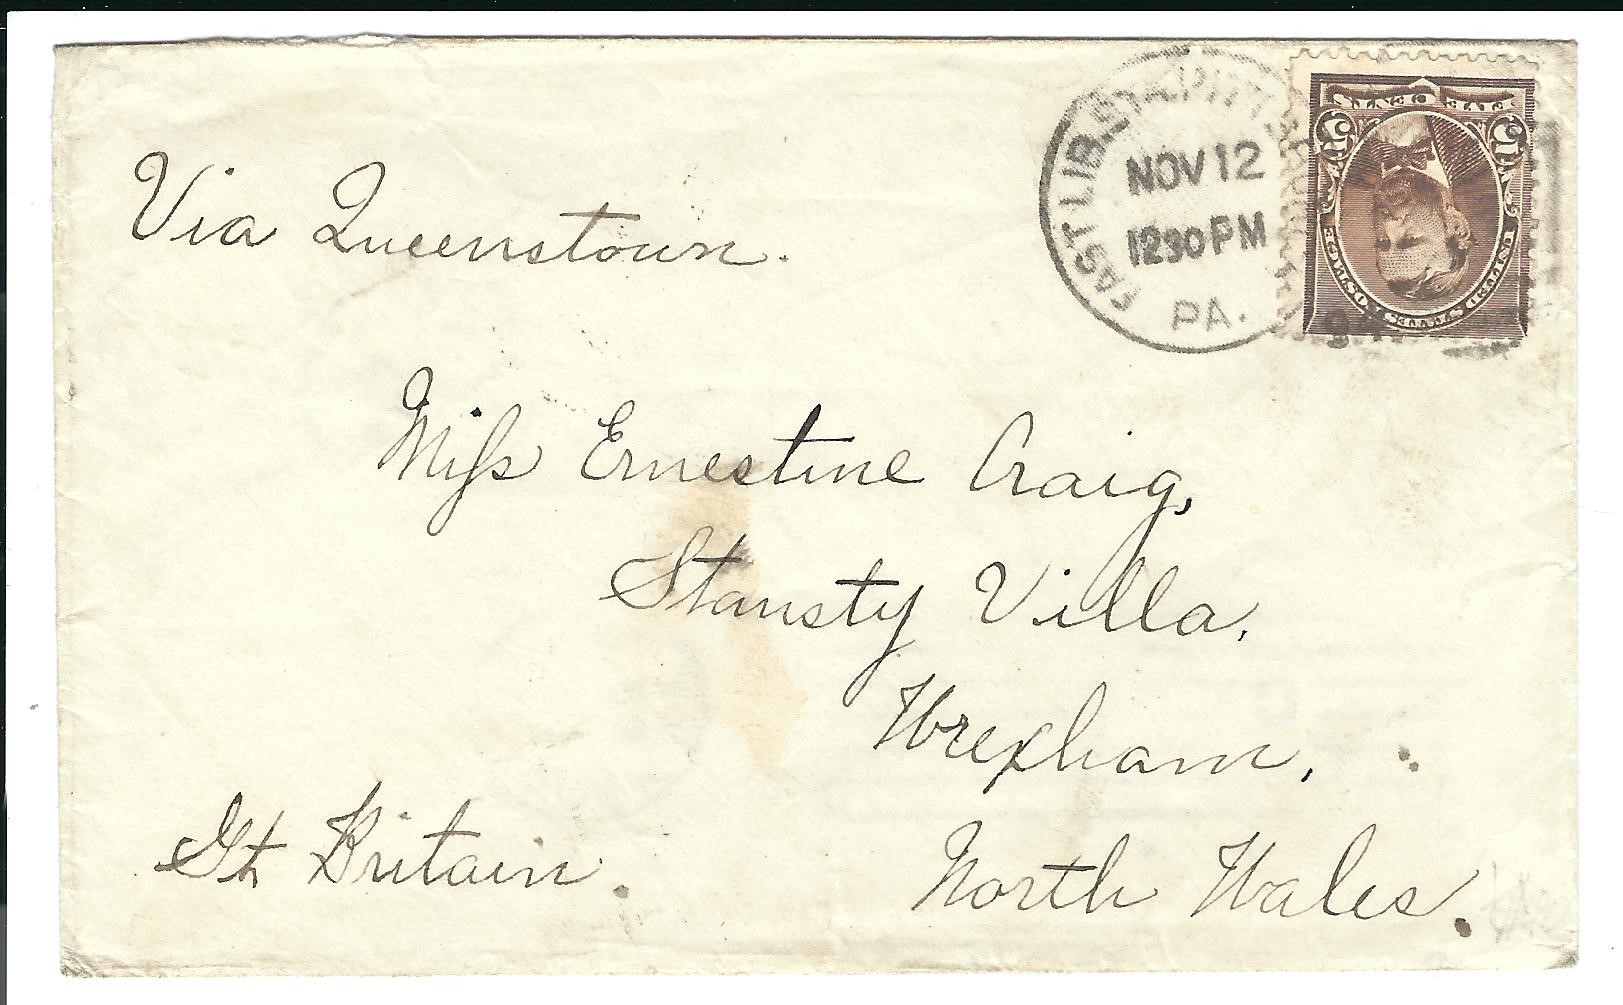 Via Queenstown.
EAST LIBERTY STA. PITTSBURG
NOV 12
1230 PM
PA.
94
5 5
UNITED STATES POSTAGE
Miss Ernestine Craig,
Stansty Villa,
Wrexham,
North Wales.
Gt Britain.